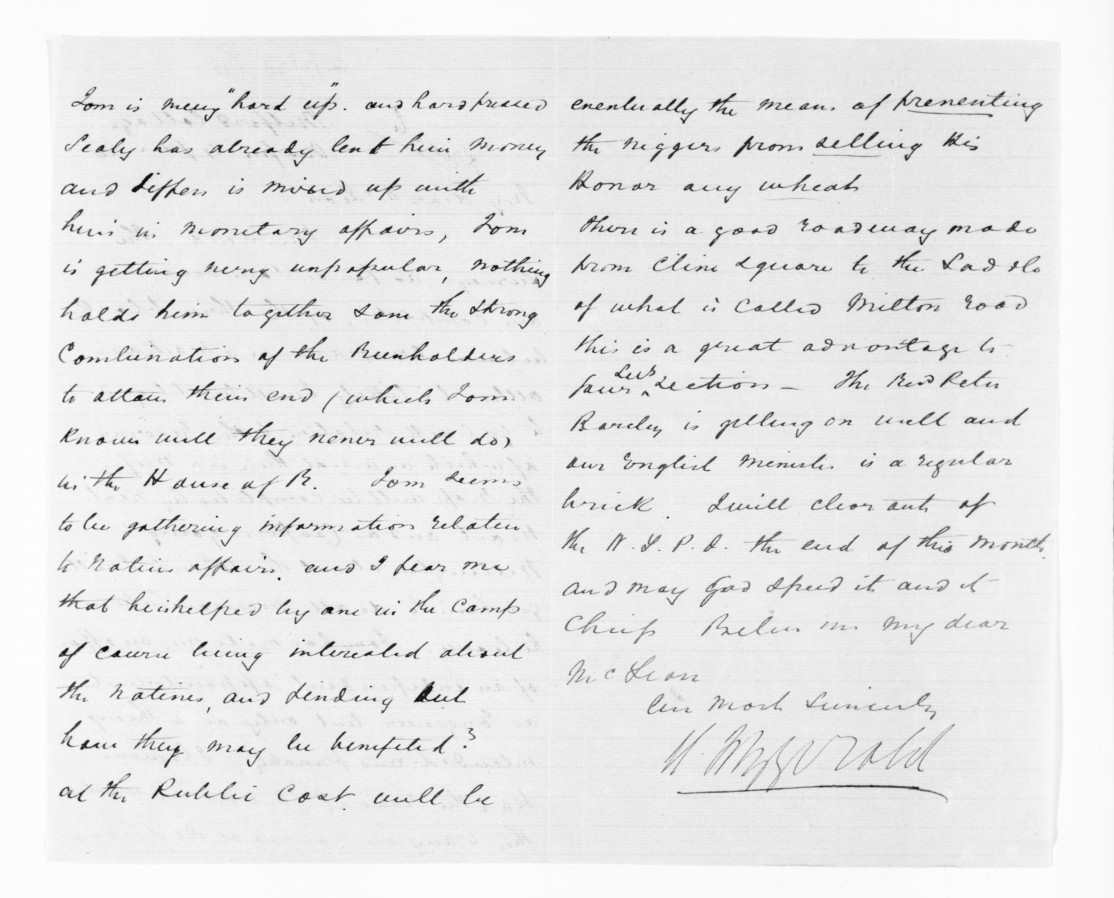 Tom is very "hard up". and hard pressed
Sealy has already lent him money
and Tiffen is mixed up with
him in monetary affairs, Tom
is getting very unpopular, nothing
holds him together save the strong
Combination of the Runholders
to attain their end (which Tom
Knows well they never will do)
in the House of R. Tom seems
to be gathering information relative
to Native affairs. and I fear me
that he is helped by one in the Camp
of course being interested about
the natives, and finding out
how they may be benefited?
at the Public Cost. will be
eventually the means of preventing
the niggers from selling His
Honor any wheat
There is a good roadway made
from Clive Square to the
of what is called Milton road
this is a great advantage to
your Sub Section — The Revd Peter
Barclay is getting on well and
our English Minister is a regular
brick. I will clear out of
the N. Z. P. I. the end of this month.
and may God speed it and it
Chief Believe me my dear
McLean
Ever Most Sincerely
H. Fitzgerald